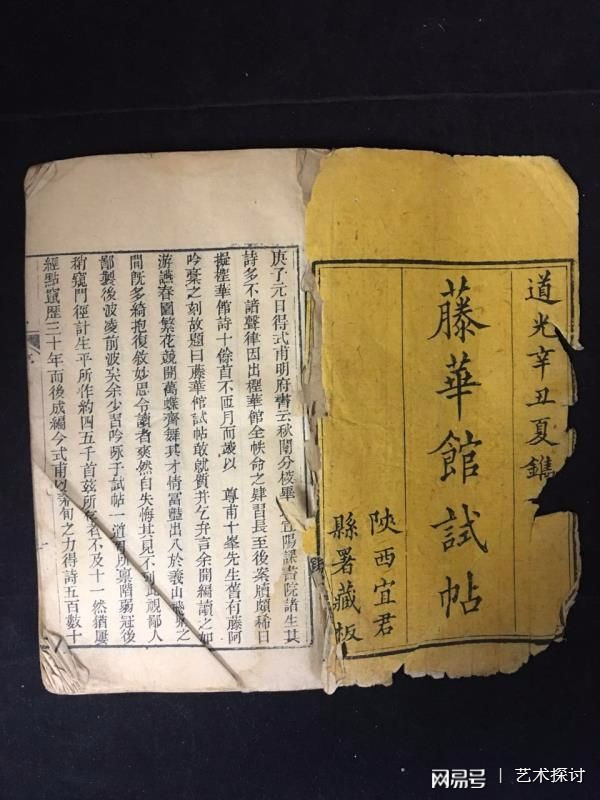 道光辛丑夏鐫
藤華館試帖
陝西宜君
縣署藏板
庚子元日得式甫明府書云秋闈分校畢宜陽課書院諸生其
詩多不諳聲律因出樨華館全帙命之肄習長至後案牘頗稀日
擬樨華館詩十餘首不匝月而蕆以 尊甫十峯先生舊有藤阿
吟藁之刻故題曰藤華館試帖敢就質并乞弁言余開編讀之如
游讌春園繁花競開萬蝶齊舞其才情冨豔出入於義山飛卿之
間旣多綺抱復敘妙思令讀者爽然自失悔其見不到此視鄙人
鄙製後波凌前波矣余少習吟咏于試帖一道 稟階弱冠後
稍窺門徑計生平所作約四五千首茲所存者不及十一然猶屢
經點竄歷三十年而後成編今式甫以 旬之力得詩五百數十
網易号 | 艺术探讨